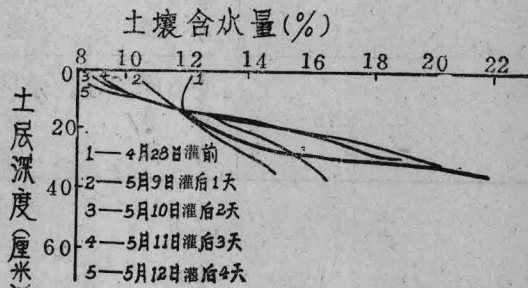 土壤含水量(%)
8 10 12 14 16 18 20 22
0
3 4 2 1
5
20
40
60
土层深度(厘米)
1——4月28日灌前
2——5月9日灌后1天
3——5月10日灌后2天
4——5月11日灌后3天
5——5月12日灌后4天